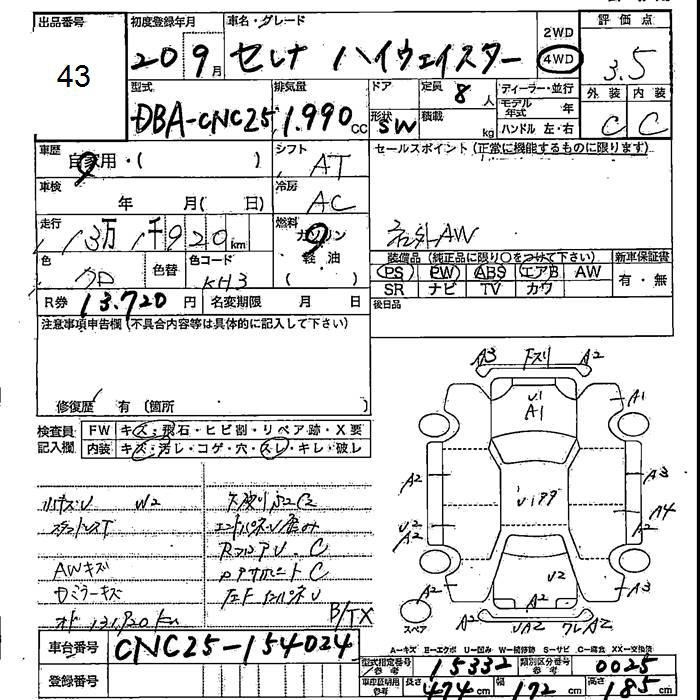 出品番号 初度登録年月 車名・グレード 2WD 評価点
43 20 9月 セレナ ハイウェイスター 4WD 3.5
型式 排気量 ドア 定員 8人 ディーラー・並行 外装 内装
DBA-CNC25 1.990cc 形状 SW 積載 kg モデル年式 年 C C
ハンドル 左・右
車歴 自家用・( ) シフト AT セールスポイント (正常に機能するものに限ります)
車検 年 月( 日) 冷房 AC
走行 13万1千920km 燃料 ガソリン 軽油 社外AW
色 クロ 色替 色コード KH3 装備品(純正品に限り〇をつけて下さい) 新車保証書
PS PW ABS エアB AW 有・無
R券 13.720円 名変期限 月 日 SR ナビ TV カワ
注意事項申告欄(不具合内容等は具体的に記入して下さい) 後日品
修復歴 有 (箇所 )
検査員 FW キズ・飛石・ヒビ割・リペア跡・X要
記入欄 内装 キズ・汚レ・コゲ・穴・スレ・キレ・破レ
A3 下スリ A2
U1
A1
A1
A2 U199 A3
A4
U2 A2
A2
U2
A2 A2 A3
スペア UA2 ワレA2
W2
AWキズ
Dミラーキズ
オド 131,920km
B/TX
車台番号 CNC25-154024
登録番号
A-キズ E-エクボ U-凹み W-補修跡 S-サビ C-腐食 XX-交換済
型式指定番号 参考 15332 類別区分番号 参考 0025
車庫証明用 参考 長さ 474cm 幅 172cm 高さ 185cm